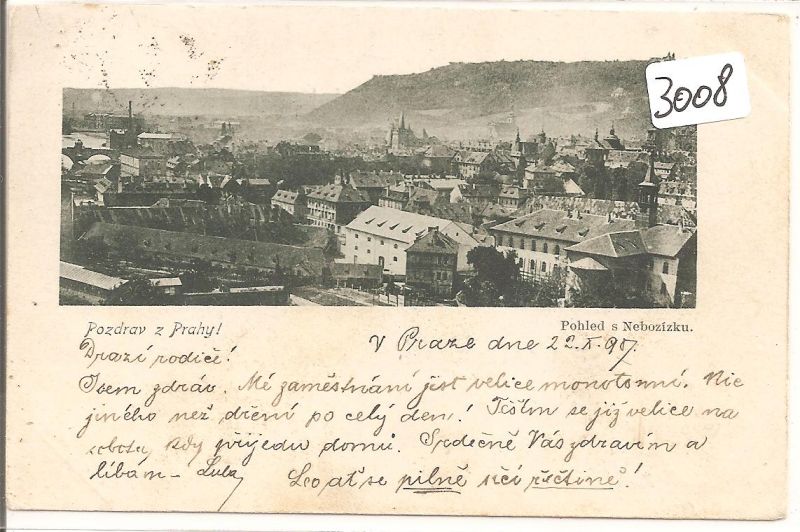 3008
Pozdrav z Prahy!
Pohled s Nebozízku.
V Praze dne 22.X.97.
Drazí rodiče!
Jsem zdráv. Mé zaměstnání jest velice monotonní. Nic
jiného než dření po celý den! Těším se již velice na
sobotu, kdy přijedu domů. Srdečně Vás zdravím a
líbám – Luba
Leo ať se pilně učí řečtině!